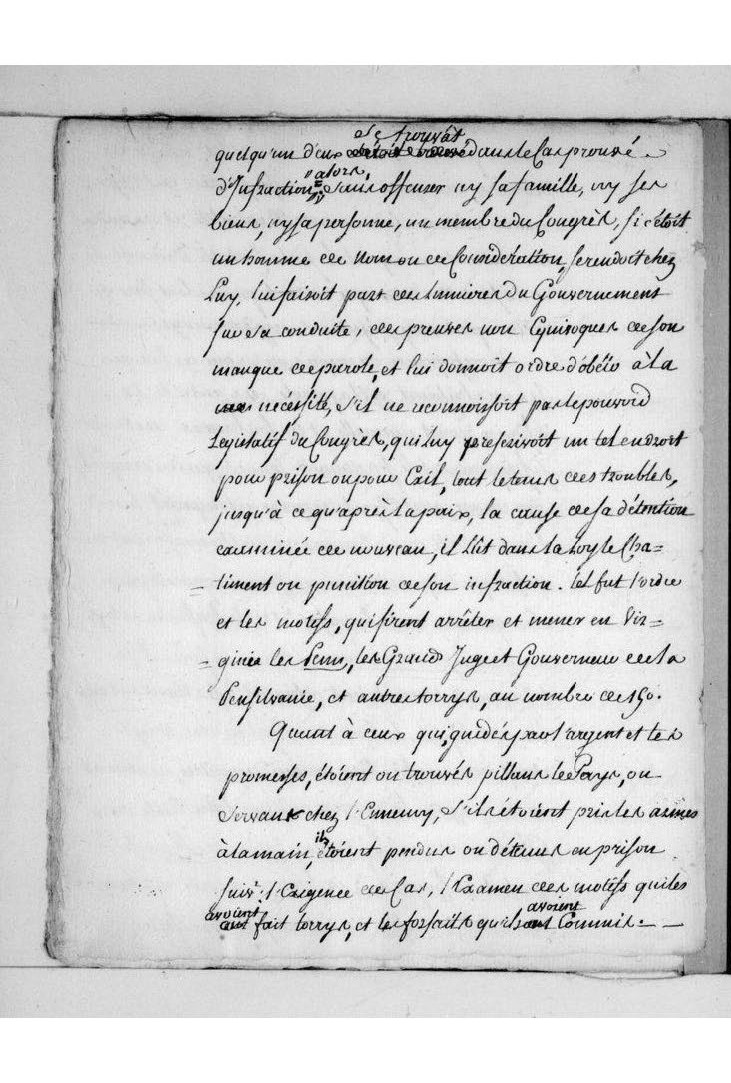 se trouvât
quelqu'un d'eux dans le Cas prouvé
alors,
d'Infraction, sans offenser ny sa famille, ny ses
biens, ny sa personne, un membre du Congrès, si c'étoit
un homme de Nom ou de Considération, se rendoit chez
Luy, lui faisoit part des lumieres du Gouvernement
sur sa conduite, des preuves non Equivoques de son
manque de parole, et lui donnoit ordre d'obéir à la
necéssité, s'il ne reconnoissoit pas le pouvoir
Legislatif du Congrès, qui luy prescrivoit un tel endroit
pour prison ou pour Exil, tout le tems des troubles,
jusqu'à ce qu'après la paix, la cause de sa détention
examinée de nouveau, il lût dans la Loy le Cha=
=timent ou punition de son infraction. tel fut l'ordre
et les motifs, qui firent arrêter et mener en Vir=
=ginie les Penn, les Grand Juge et Gouverneur de la
Pensilvanie, et autres torrys, au nombre de 150.
Quant à ceux qui, guidés par l'argent et les
promesses, étoient ou trouvés pillans le Pays, ou
servans chez l'Ennemy, s'ils étoient pris les armes
à la main, ils étoient pendus ou détenus en prison
suivt. l'Exigence du Cas, l'Examen des motifs qui les
avoient avoient
fait torrys, et les forfaits qu'ils Commis.